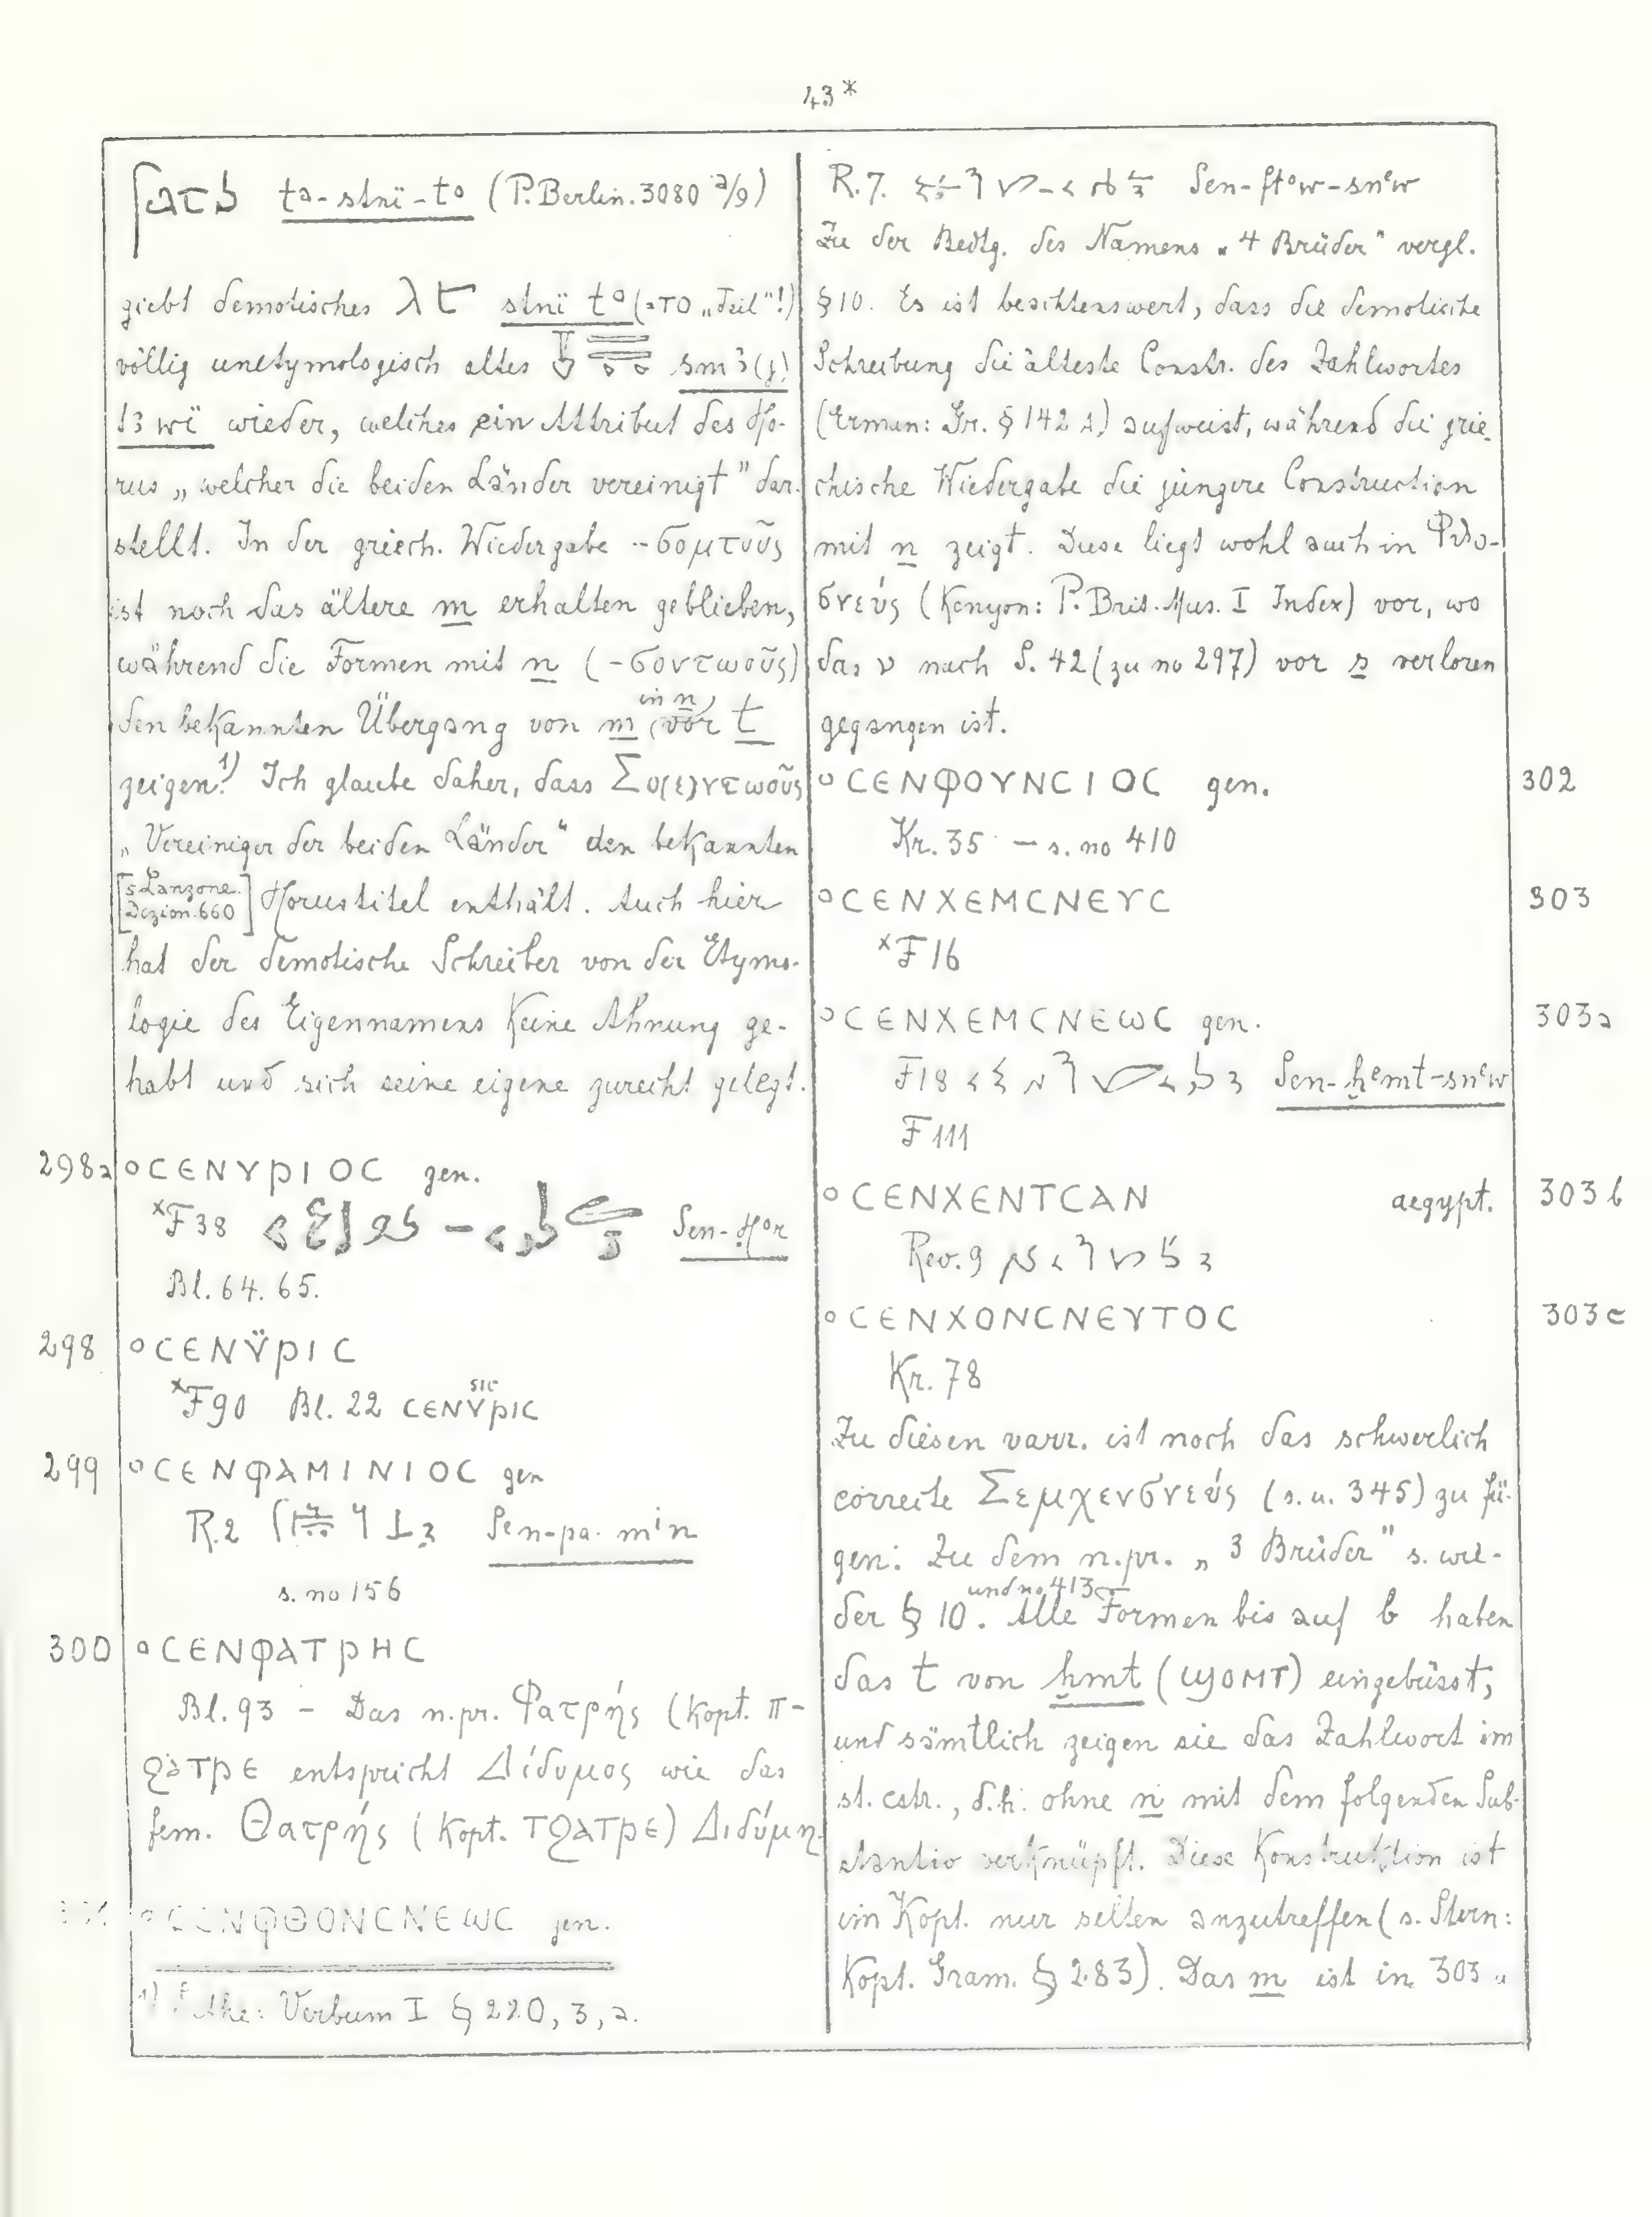 43*
tᵃ-stnï-tᵒ (P. Berlin. 3080 a/9)
giebt demotisches stnï tᵒ (= ⲦⲞ „Teil"!)
völlig unetymologisch altes sm3(j)
t3wï wieder, welches ein Attribut des Ho-
rus „welcher die beiden Länder vereinigt" dar-
stellt. In der griech. Wiedergabe -σομτοῦς
ist noch das ältere m erhalten geblieben,
während die Formen mit n (-σοντωοῦς)
den bekannten Übergang von m in n vor t
zeigen.¹⁾ Ich glaube daher, dass Σο(ε)ντωοῦς
„Vereiniger der beiden Länder" den bekannten
[s. Lanzone. Dizion. 660] Horustitel enthält. Auch hier
hat der demotische Schreiber von der Etymo-
logie des Eigennamens keine Ahnung ge-
habt und sich seine eigene zurecht gelegt.
298a °ϹΕΝΥΡΙΟϹ gen.
ˣF38 Sen-Ḥᵒr
Bl. 64. 65.
298 °ϹΕΝΫΡΙϹ
ˣF90 Bl. 22 ϹΕΝΥΡΙϹ sic
299 °ϹΕΝΦΑΜΙΝΙΟϹ gen
R. 2 Sen-pa-mⁱn
s. no 156
300 °ϹΕΝΦΑΤΡΗϹ
Bl. 93 – Das n. pr. Φατρῆς (Kopt. π-
ϩⲁⲧⲣⲉ entspricht Δίδυμος wie das
fem. Θατρῆς (Kopt. ⲧϩⲁⲧⲣⲉ) Διδύμη.
°ϹΕΝΦΘΟΝϹΝΕωϹ gen.
¹⁾ Sethe: Verbum I § 220, 3, a.
R. 7. Sen-ftᵒw-snᵉw
Zu der Bedtg. des Namens „4 Brüder" vergl.
§ 10. Es ist beachtenswert, dass die demotische
Schreibung die älteste Constr. des Zahlwortes
(Erman: Gr. § 142 A) aufweist, während die grie-
chische Wiedergabe die jüngere Construction
mit n zeigt. Diese liegt wohl auch in Φθο-
σνεύς (Kenyon: P. Brit. Mus. I Index) vor, wo
das ν nach S. 42 (zu no 297) vor s verloren
gegangen ist.
°ϹΕΝΦΟΥΝϹΙΟϹ gen. 302
Kr. 35 – s. no 410
°ϹΕΝΧΕΜϹΝΕΥϹ 303
ˣF16
°ϹΕΝΧΕΜϹΝΕωϹ gen. 303a
F18 Sen-ḫᵉmt-snᵉw
F111
°ϹΕΝΧΕΝΤϹΑΝ aegypt. 303b
Rev. 9
°ϹΕΝΧΟΝϹΝΕΥΤΟϹ 303c
Kr. 78
Zu diesen varr. ist noch das schwerlich
correcte Σεμχενσνεύς (s. u. 345) zu fü-
gen: Zu dem n. pr. „3 Brüder" s. wie-
der § 10 und no 413. Alle Formen bis auf b haben
das t von ḫmt (ϣⲟⲙⲧ) eingebüsst,
und sämtlich zeigen sie das Zahlwort im
st. cstr., d. h. ohne n mit dem folgenden Sub-
stantiv verknüpft. Diese Konstruktion ist
im Kopt. nur selten anzutreffen (s. Stern:
Kopt. Gram. § 283). Das m ist in 303